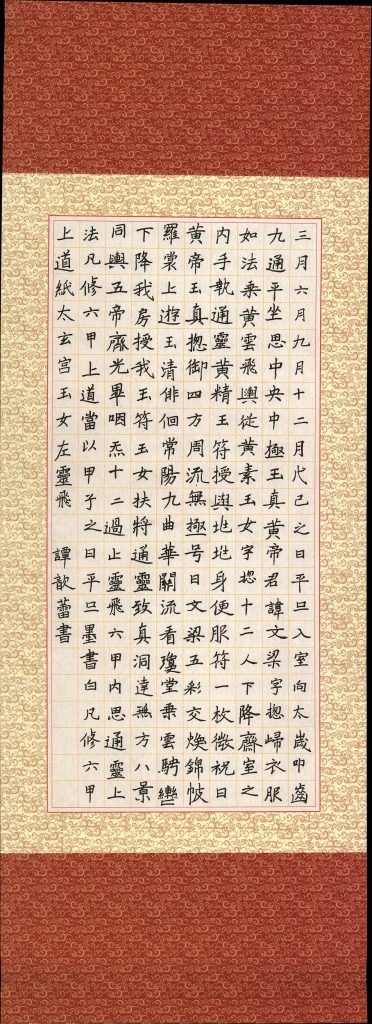 三月六月九月十二月戊己之日平旦入室向太歲叩齒
九通平坐思中央中極玉真黃帝君諱文梁字摠歸衣服
如法乘黃雲飛輿從黃素玉女十二人下降齋室之
內手執通靈黃精玉符授與兆兆身便服符一枚微祝曰
黃帝玉真摠御四方周流無極号曰文梁五彩交煥錦帔
羅裳上遊玉清俳佪常陽九曲華關流看瓊堂乘雲騁轡
下降我房授我玉符玉女扶將通靈致真洞達無方八景
同輿五帝齊光畢咽炁十二過止靈飛六甲內思通靈上
法凡修六甲上道當以甲子之日平旦墨書白凡修六甲
上道紙太玄宮玉女左靈飛 譚歆蕾書